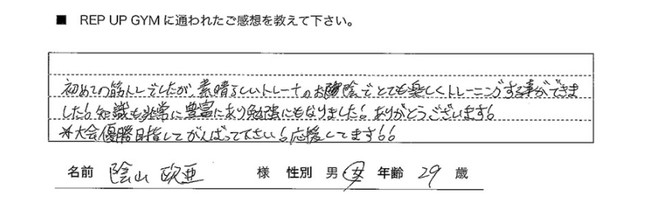 ■ REP UP GYMに通われたご感想を教えて下さい。
初めての筋トレでしたが、素晴らしいトレーナーのお陰でとても楽しくトレーニングする事ができま
した！知識も非常に豊富にあり勉強にもなりました！ありがとうございます！
※大会優勝目指してがんばって下さい！応援してます！！
名前 陰山 欧亜 様 性別 男 女 年齢 29 歳